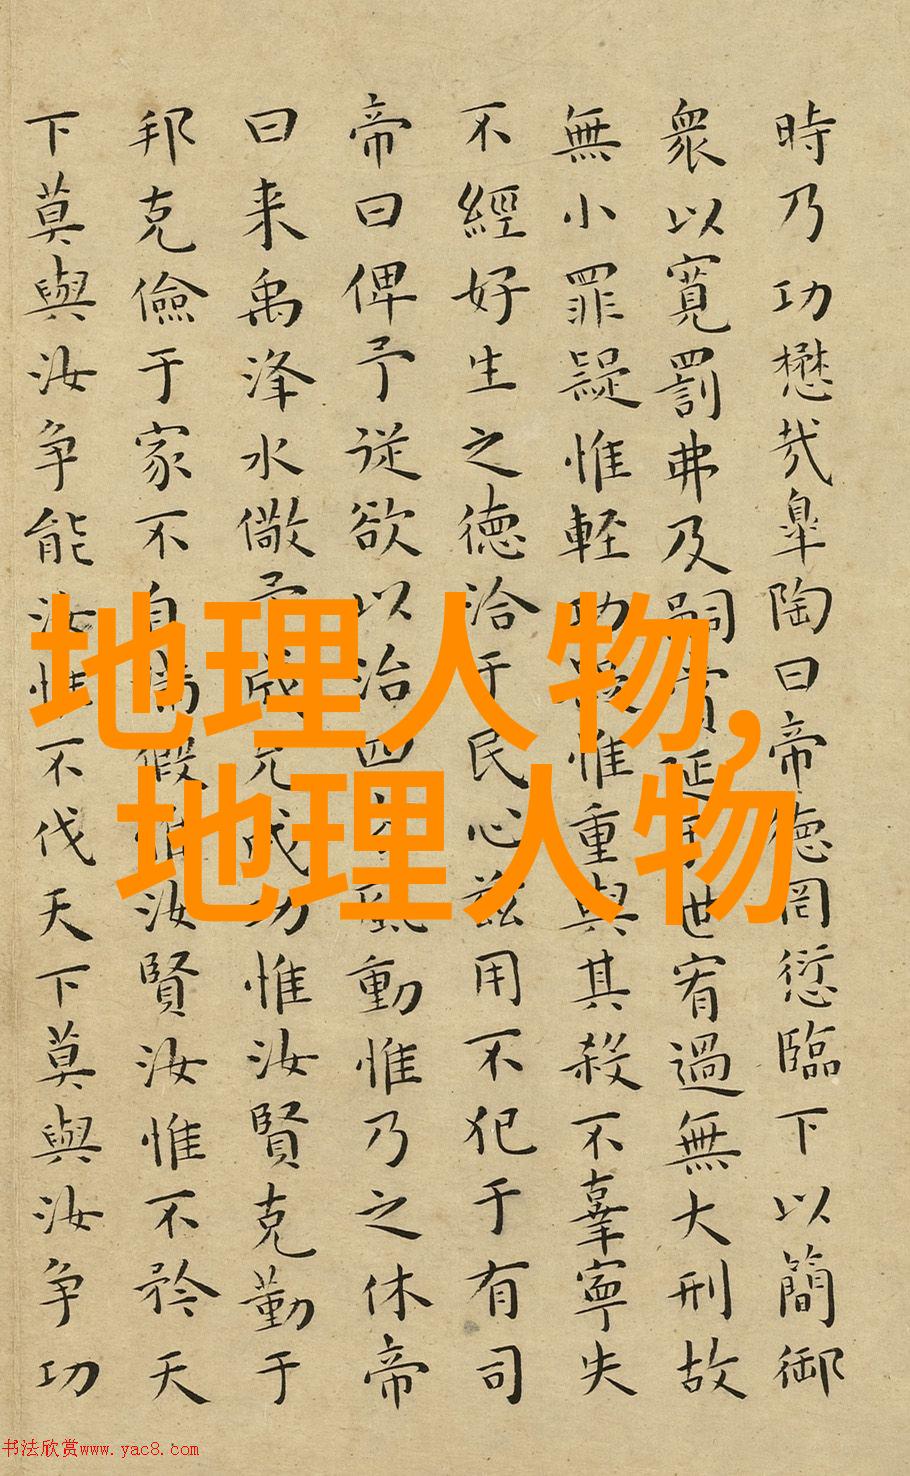 時乃功懋哉皐陶曰帝徳罔愆臨下以簡御
衆以寛罰弗及嗣賞延于世宥過無大刑故
無小罪疑惟軽功疑惟重與其殺不辜寧失
不經好生之徳洽于民心茲用不犯于有司
帝曰俾予従欲以治四方風動惟乃之休帝
曰来禹洚水儆予成允成功惟汝賢克勤于
邦克儉于家不自滿假惟汝賢汝惟不矜天
下莫與汝争能汝惟不伐天下莫與汝争功
地理人物,
地理人物
书法欣赏www.yac8.com